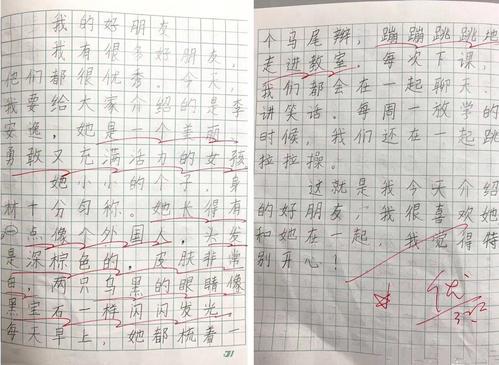 我的好朋友
我有很多好朋友，
他们都很优秀。今天，
我要给大家介绍的是李
安逸，她是一个美丽、
勇敢又充满活力的女孩
她小小的个子，身
材十分匀称。她长得有
一点像个外国人，头发
是深棕色的，皮肤非常
白，两只乌黑的眼睛像
黑宝石一样闪闪发光。
每天早上，她都梳着一
31
个马尾辫，蹦蹦跳跳地
走进教室。每次下课，
我们都会在一起聊天、
讲笑话。每周一放学的
时候，我们还在一起跳
拉拉操。
这就是我今天介绍
的好朋友，我很喜欢她
和她在一起，我觉得特
别开心！
优
3.22